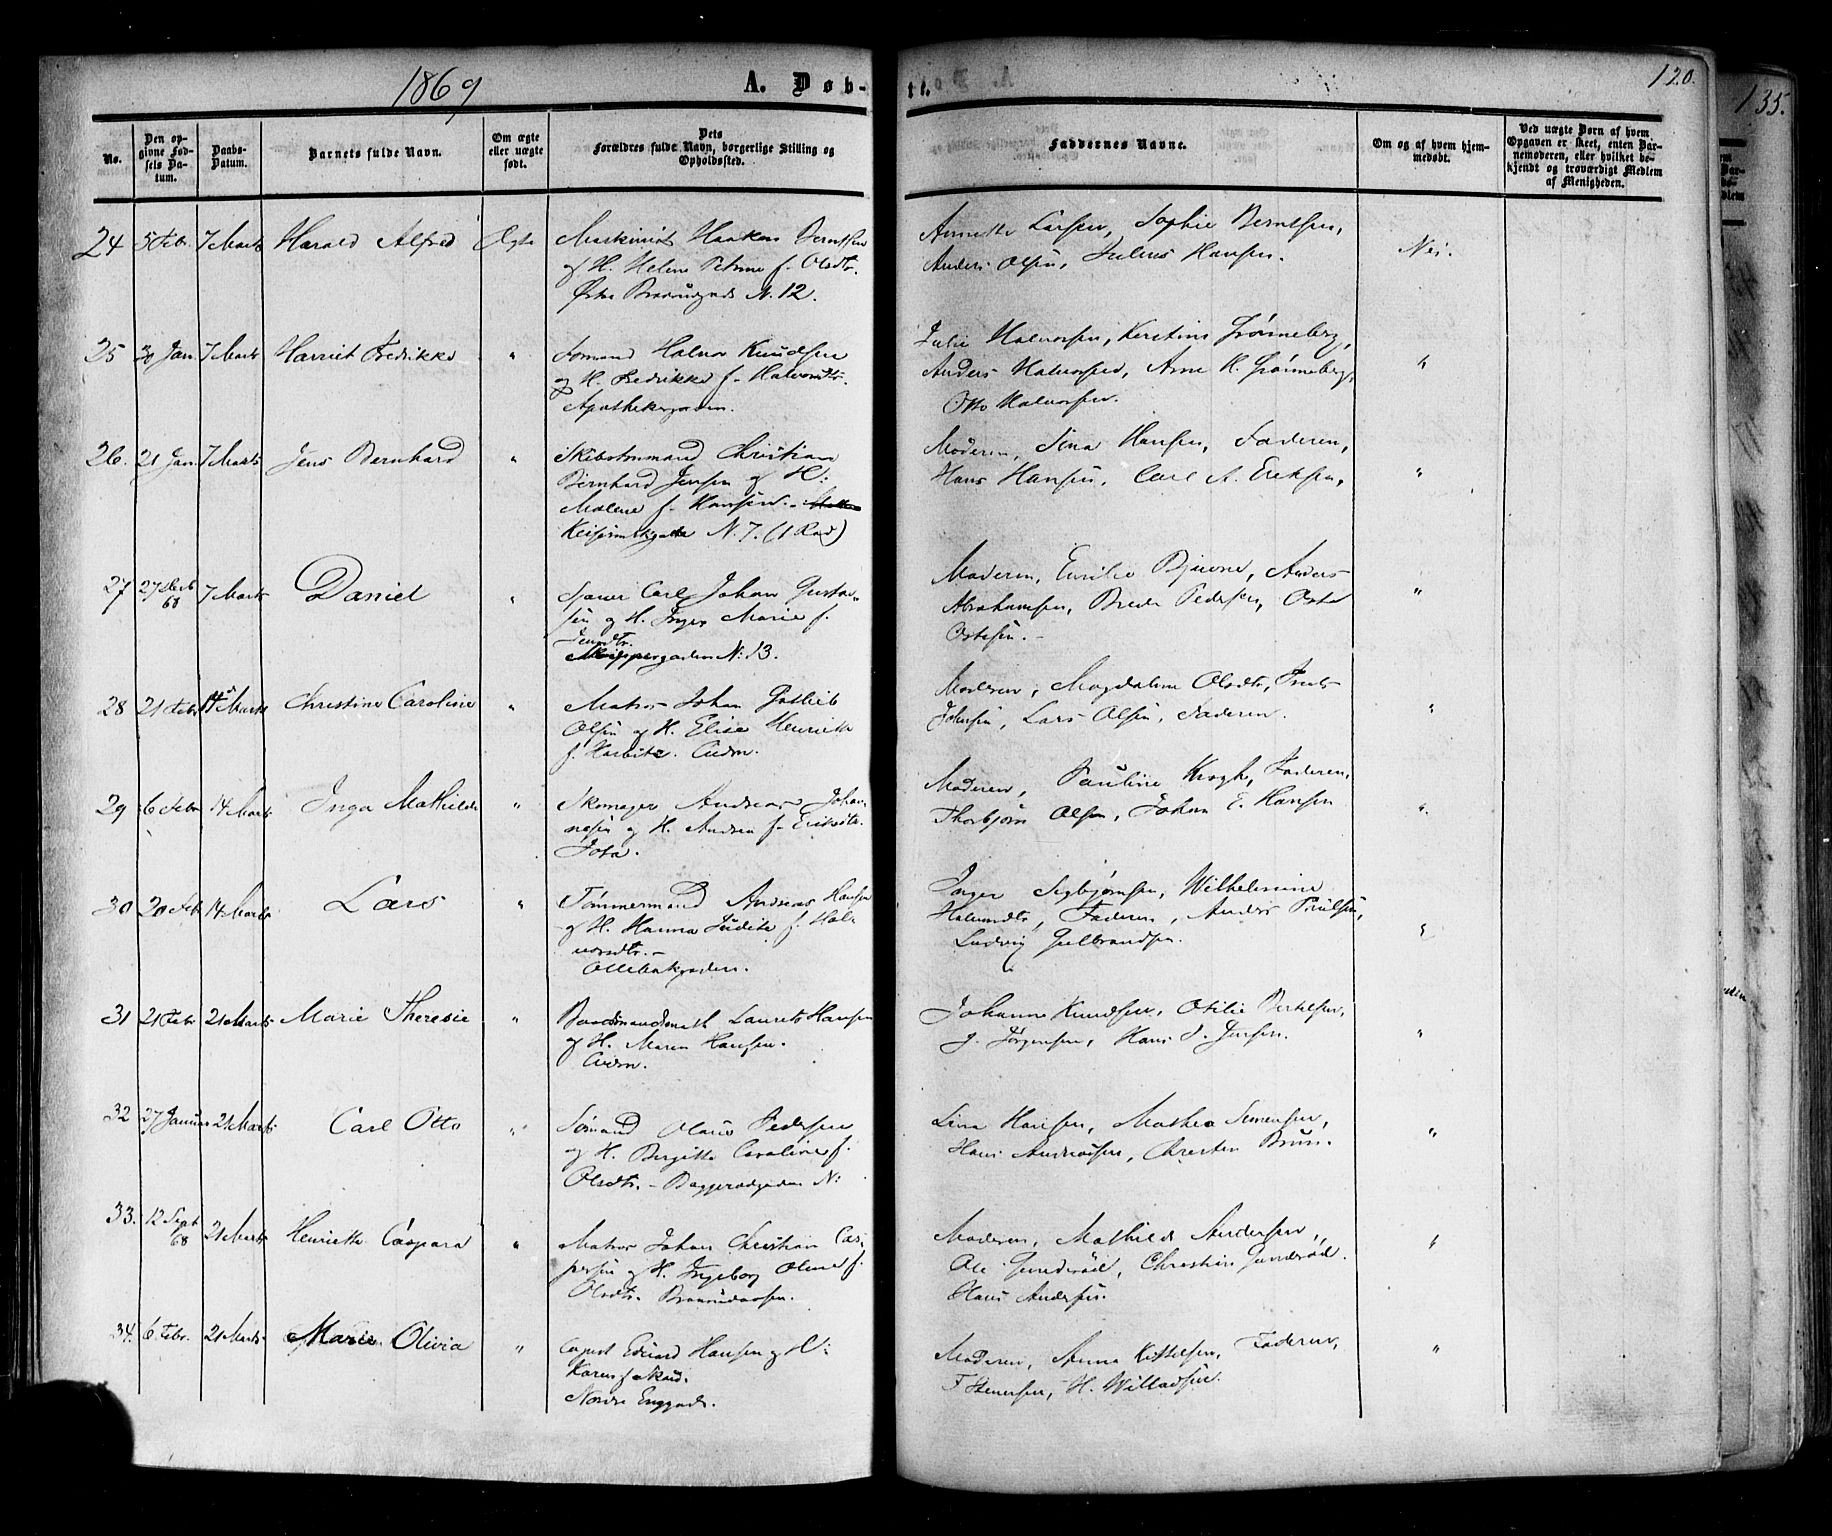 1869
A. Døb-
No.
Den op-
givne Fød-
sels Da-
tum.
Daabs-
Datum.
Barnets fulde Navn.
Om ægte
eller uægte
født.
Dets
Forældres fulde Navn, borgerlige Stilling og
Opholdssted.
24 5 Febr. 7 Marts Harald Alfred Ægte Maskinist Haaken Berntsen
og H. Helene Petrine f. Olsdtr.
Østre N. 12.
25 30 Jan. 7 Marts Harriet Fredrikke " Sømand Halvor Knudsen
og H. Fredrikke f. Halvorsdtr.
Apothekergaden.
26. 21 Jan. 7 Marts Jens Bernhard " Skibstømmermand Christian
Bernhard Jensen og H:
Malene f. Hansen.
N. 7. (1 Rod)
27 27 Decb 68 7 Marts Daniel " Carl Johan Gustav-
sen og H. Inger Marie f.
Jensdtr.
N: 13.
28 21 Febr 14 Marts Christine Caroline " Matros Johan Gotlieb
Olsen og H. Elise Henriette
f. Harbitz.
29 6 Febr 14 Marts Inga Mathilde " Skomager Andreas Johan-
nesen og H. Andrea f. Eriksdtr.
30 20 Feb 14 Marts Lars " Tømmermand Andreas Hansen
og H. Hanna Judite f. Hal-
vorsdtr.-
31 21 Febr 21 Marts Marie Theresie " Baadsmandsmath Laurits Hansen
og H. Maren Hansen.
32 27 Januar 21 Marts Carl Otto " Sømand Olaus Pedersen
og H. Bergitte Caroline f.
Olsdtr. - N:
33. 12 Sept 68 21 Marts Henriette Caspara " Matros Johan Christian Cas-
persen og H. Ingeborg Oline f.
Olsdtr.
34. 6 Febr. 21 Marts Marie Olivia " August Edvard Hansen og H:
Karen f.
Nordre Enggade.
120.
135.
Faddernes Navne.
Om og af hvem hjem-
medøbt.
Ved uægte Børn af hvem
Opgaven er skeet, enten Bar-
nemoderen, eller hvilket be-
kjendt og troværdigt Medlem
af Menigheden.
Annette Larsen, Sophie Berntsen,
Anders Olsen, Julius Hansen. Nei.
Julie Halvorsen, Kirstine Grønneberg,
Anders Halvorsen, Arne H. Grønneberg, "
Otto Halvorsen.
Moderen, Sina Hansen, Faderen,
Hans Hansen, Carl A. Eriksen, "
Moderen, Emilie Bjerne, Anders
Abrahamsen, Brede Pedersen, "
Moderen, Magdalene Olsdtr,
Johnsen, Lars Olsen, Faderen. "
Moderen, Pauline Krogh, Faderen,
Thorbjørn Olsen, Johan E. Hansen "
Inger Sigbjørnsen, Wilhelmine
Halvorsdtr, Faderen, Anders Poulsen,
Ludvig Gulbrandsen. "
Johanne Knudsen, Otilie Bertelsen,
J. Jørgensen, Hans J. Jensen. "
Lina Hansen, Mathea Simensen,
Hans Andreasen, Christen Bruun. "
Moderen, Mathilde Andersen,
Ole Gunderød, Christen Gunderød. "
Hans Andersen.
Moderen, Anna Kittelsen, Faderen,
F Stenersen, H. Willadsen. "